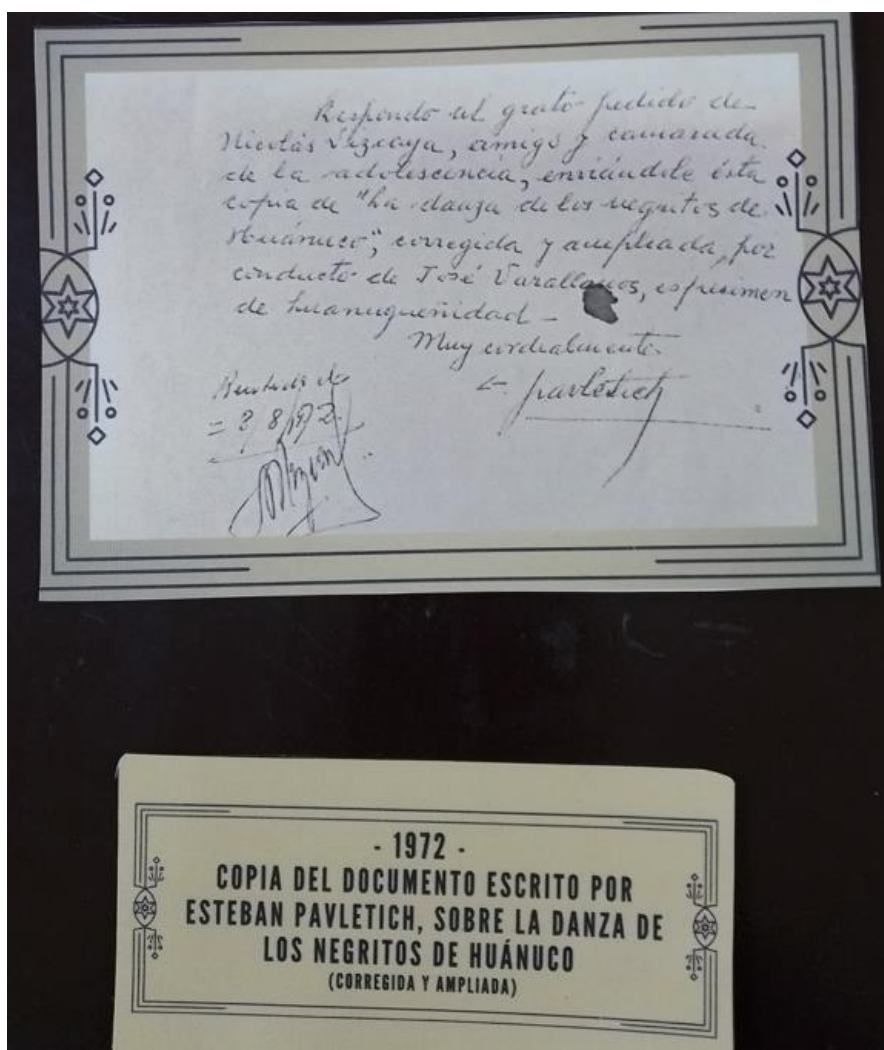 Respondo al grato pedido de
Nicolás Vizcaya, amigo y camarada
de la adolescencia, enviándole ésta
copia de "La danza de los negritos de
Huánuco", corregida y ampliada, por
conducto de José Varallanos, espécimen
de huanuqueñidad -
Muy cordialmente
Pavletich
= 3/8/972
- 1972 -
COPIA DEL DOCUMENTO ESCRITO POR
ESTEBAN PAVLETICH, SOBRE LA DANZA DE
LOS NEGRITOS DE HUÁNUCO
(CORREGIDA Y AMPLIADA)